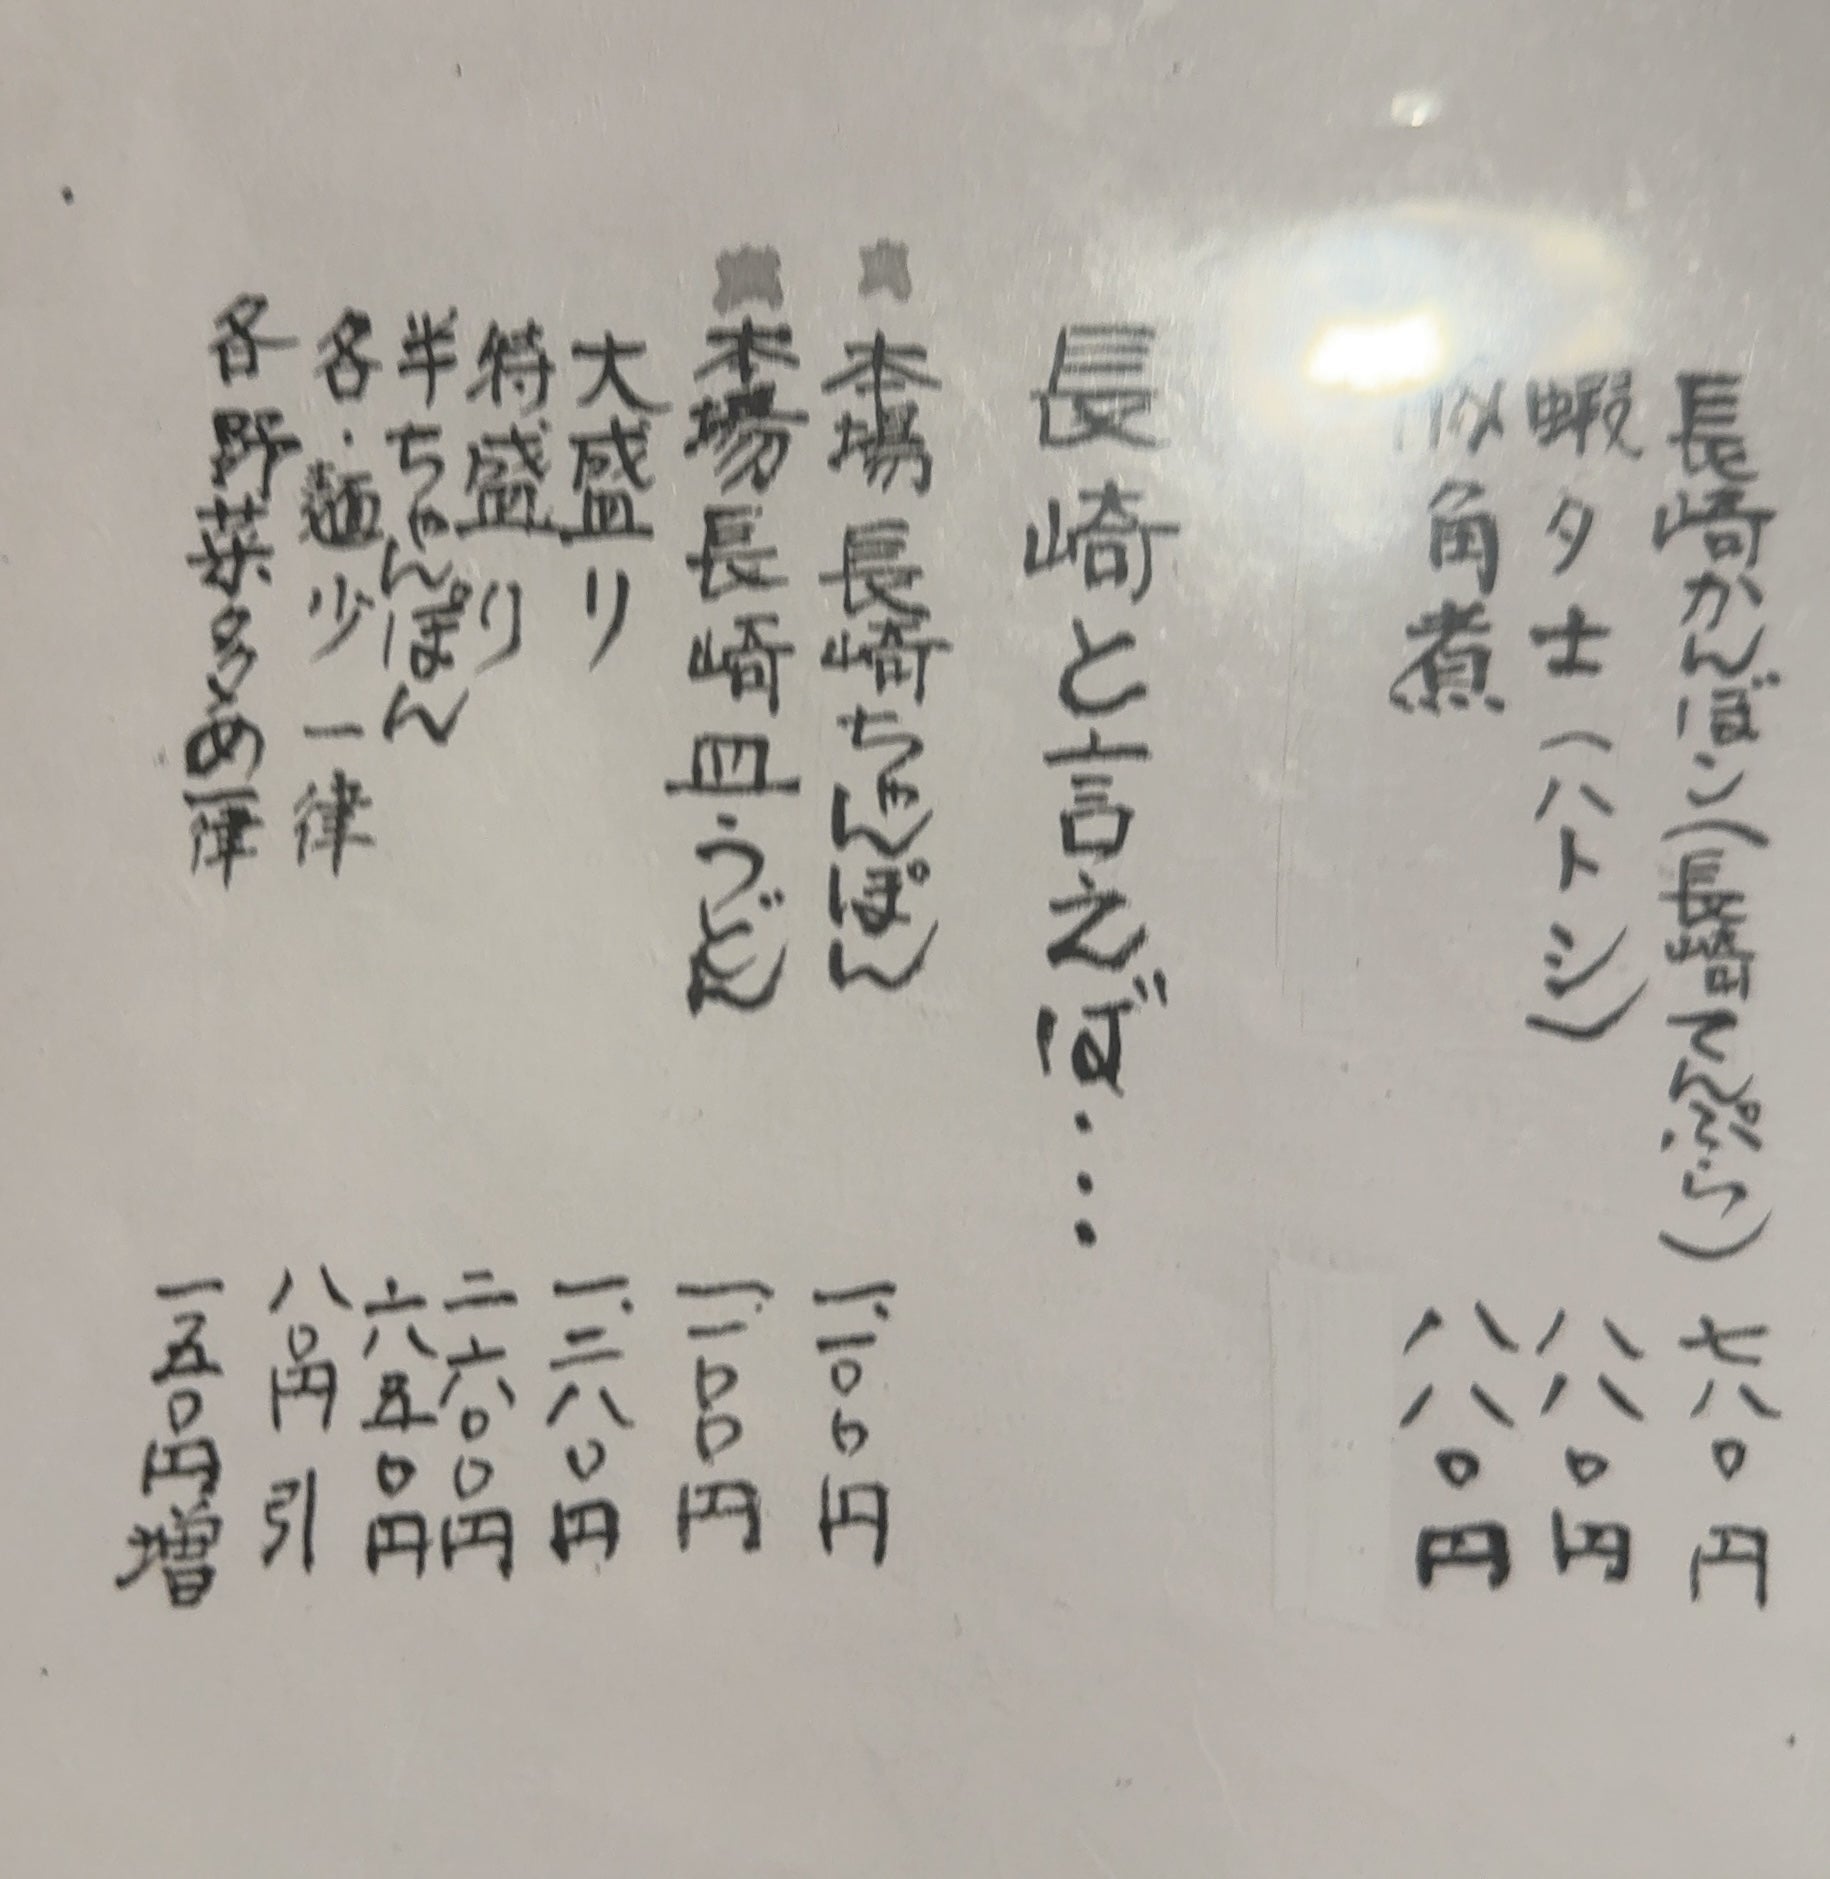 長崎かんぼこ(長崎てんぷら) 七八〇円
蝦夕士(ハトシ) 八八〇円
角煮 八八〇円
長崎と言えば・・・
本場長崎ちゃんぽん 一.一〇〇円
本場長崎皿うどん 一.一〇〇円
大盛り 一.二八〇円
特盛り 二六〇〇円
半ちゃんぽん 六五〇円
各・麺少一律 八〇円引
各野菜多め一律 一五〇円増